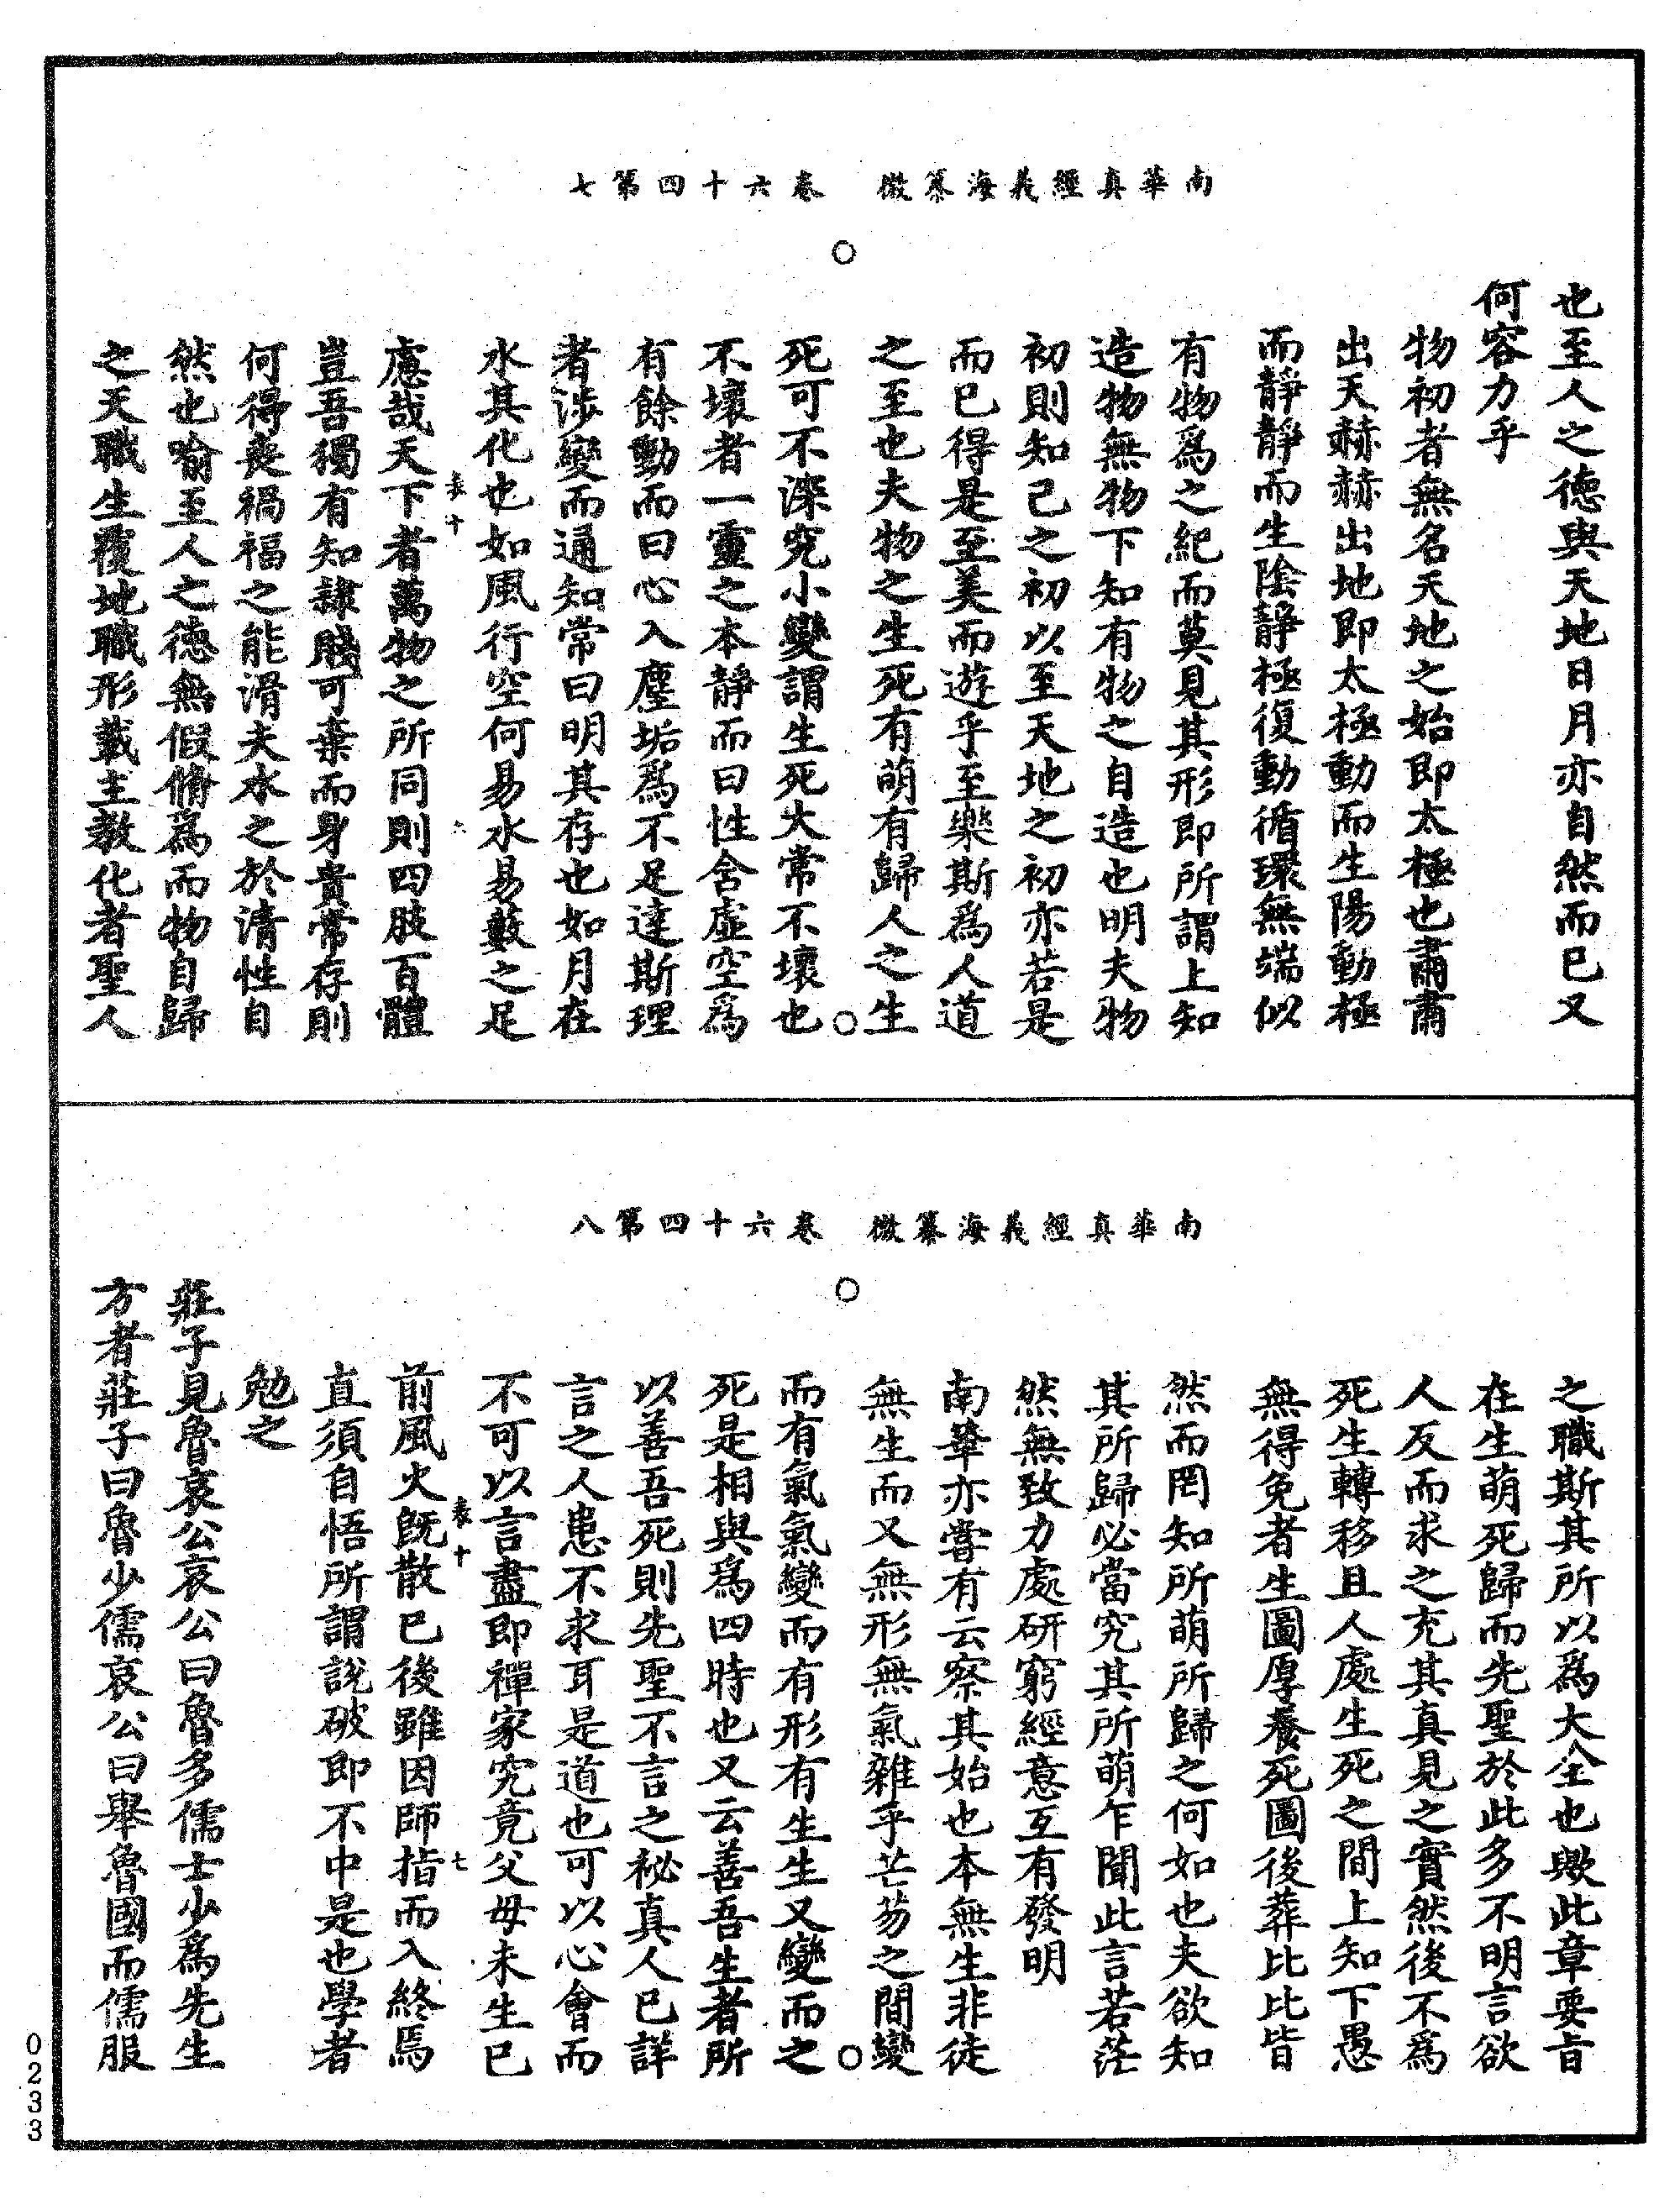 南華真經義海纂微　卷六十四第七
也至人之德與天地日月亦自然而已又
何容力乎
物初者無名天地之始即太極也肅肅
出天赫赫出地即太極動而生陽動極
而靜靜而生陰靜極復動循環無端似
有物爲之紀而莫見其形即所謂上知
造物無物下知有物之自造也明夫物
初則知己之初以至天地之初亦若是
而已得是至美而遊乎至樂斯爲人道
之至也夫物之生死有萌有歸人之生
死可不深究小變謂生死大常不壞也
不壞者一靈之本靜而曰性含虛空爲
有餘動而曰心入塵垢爲不足達斯理
者涉變而通知常曰明其存也如月在
水其化也如風行空何易水易藪之足
慮哉天下者萬物之所同則四肢百體
豈吾獨有知隸賤可棄而身貴常存則
何得喪禍福之能滑夫水之於清性自
然也喻至人之德無假脩爲而物自歸
之天職生覆地職形載主教化者聖人
南華真經義海纂微　卷六十四第八
之職斯其所以爲大全也歟此章要旨
在生萌死歸而先聖於此多不明言欲
人反而求之充其真見之實然後不爲
死生轉移且人處生死之間上知下愚
無得免者生圖厚養死圖後葬比比皆
然而罔知所萌所歸之何如也夫欲知
其所歸必當究其所萌乍聞此言若茫
然無致力處研窮經意互有發明
南華亦嘗有云察其始也本無生非徒
無生而又無形無氣雜乎芒芴之間變
而有氣氣變而有形有生生又變而之
死是相與爲四時也又云善吾生者所
以善吾死則先聖不言之祕真人已詳
言之人患不求耳是道也可以心會而
不可以言盡即禪家究竟父母未生已
前風火既散已後雖因師指而入終焉
直須自悟所謂說破即不中是也學者
勉之
莊子見魯哀公哀公曰魯多儒士少爲先生
方者莊子曰魯少儒哀公曰舉魯國而儒服
0233